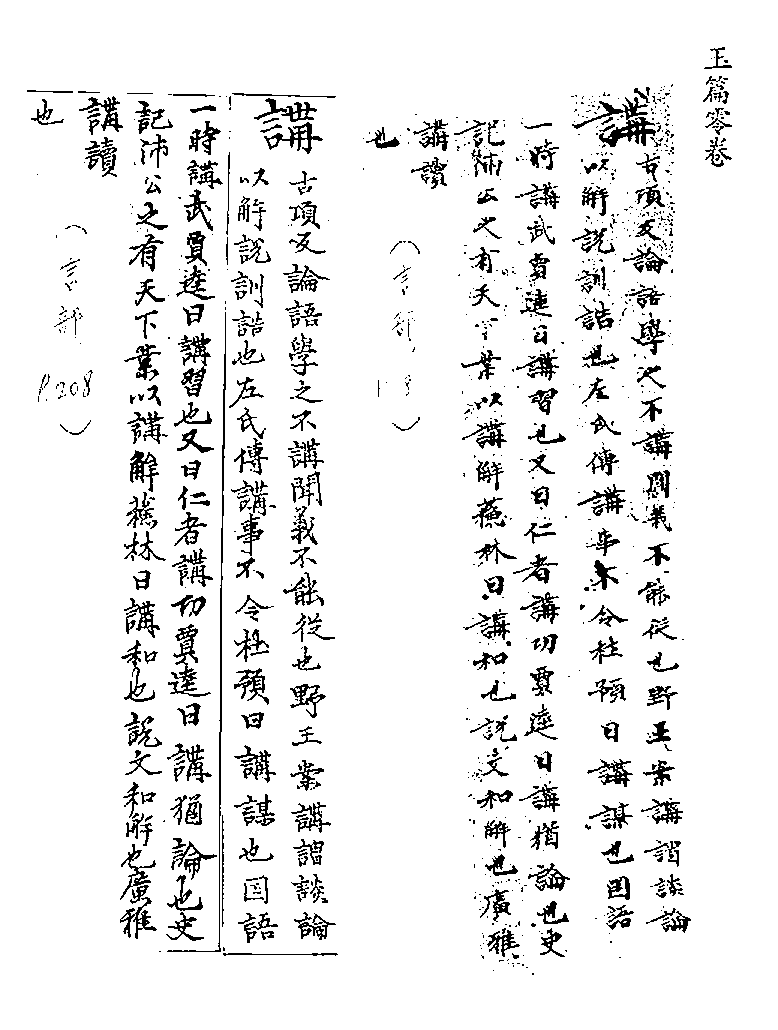 玉篇零卷
講古項反論語學之不講聞義不能從也野王案講謂談論
以解說訓詁也左氏傳講事不令杜預曰講謀也国語
一時講武賈逵曰講習也又曰仁者講功賈逵曰講猶論也史
記沛公之有天下業以講解蘓林曰講和也説文和解也廣雅
講讀
也
(言部
)
講古項反論語學之不講聞義不能從也野王案講謂談論
以解說訓詁也左氏傳講事不令杜預曰講謀也国語
一時講武賈逵曰講習也又曰仁者講功賈逵曰講猶論也史
記沛公之有天下業以講解蘓林曰講和也説文和解也廣雅
講讀
也
(言部
P.208)